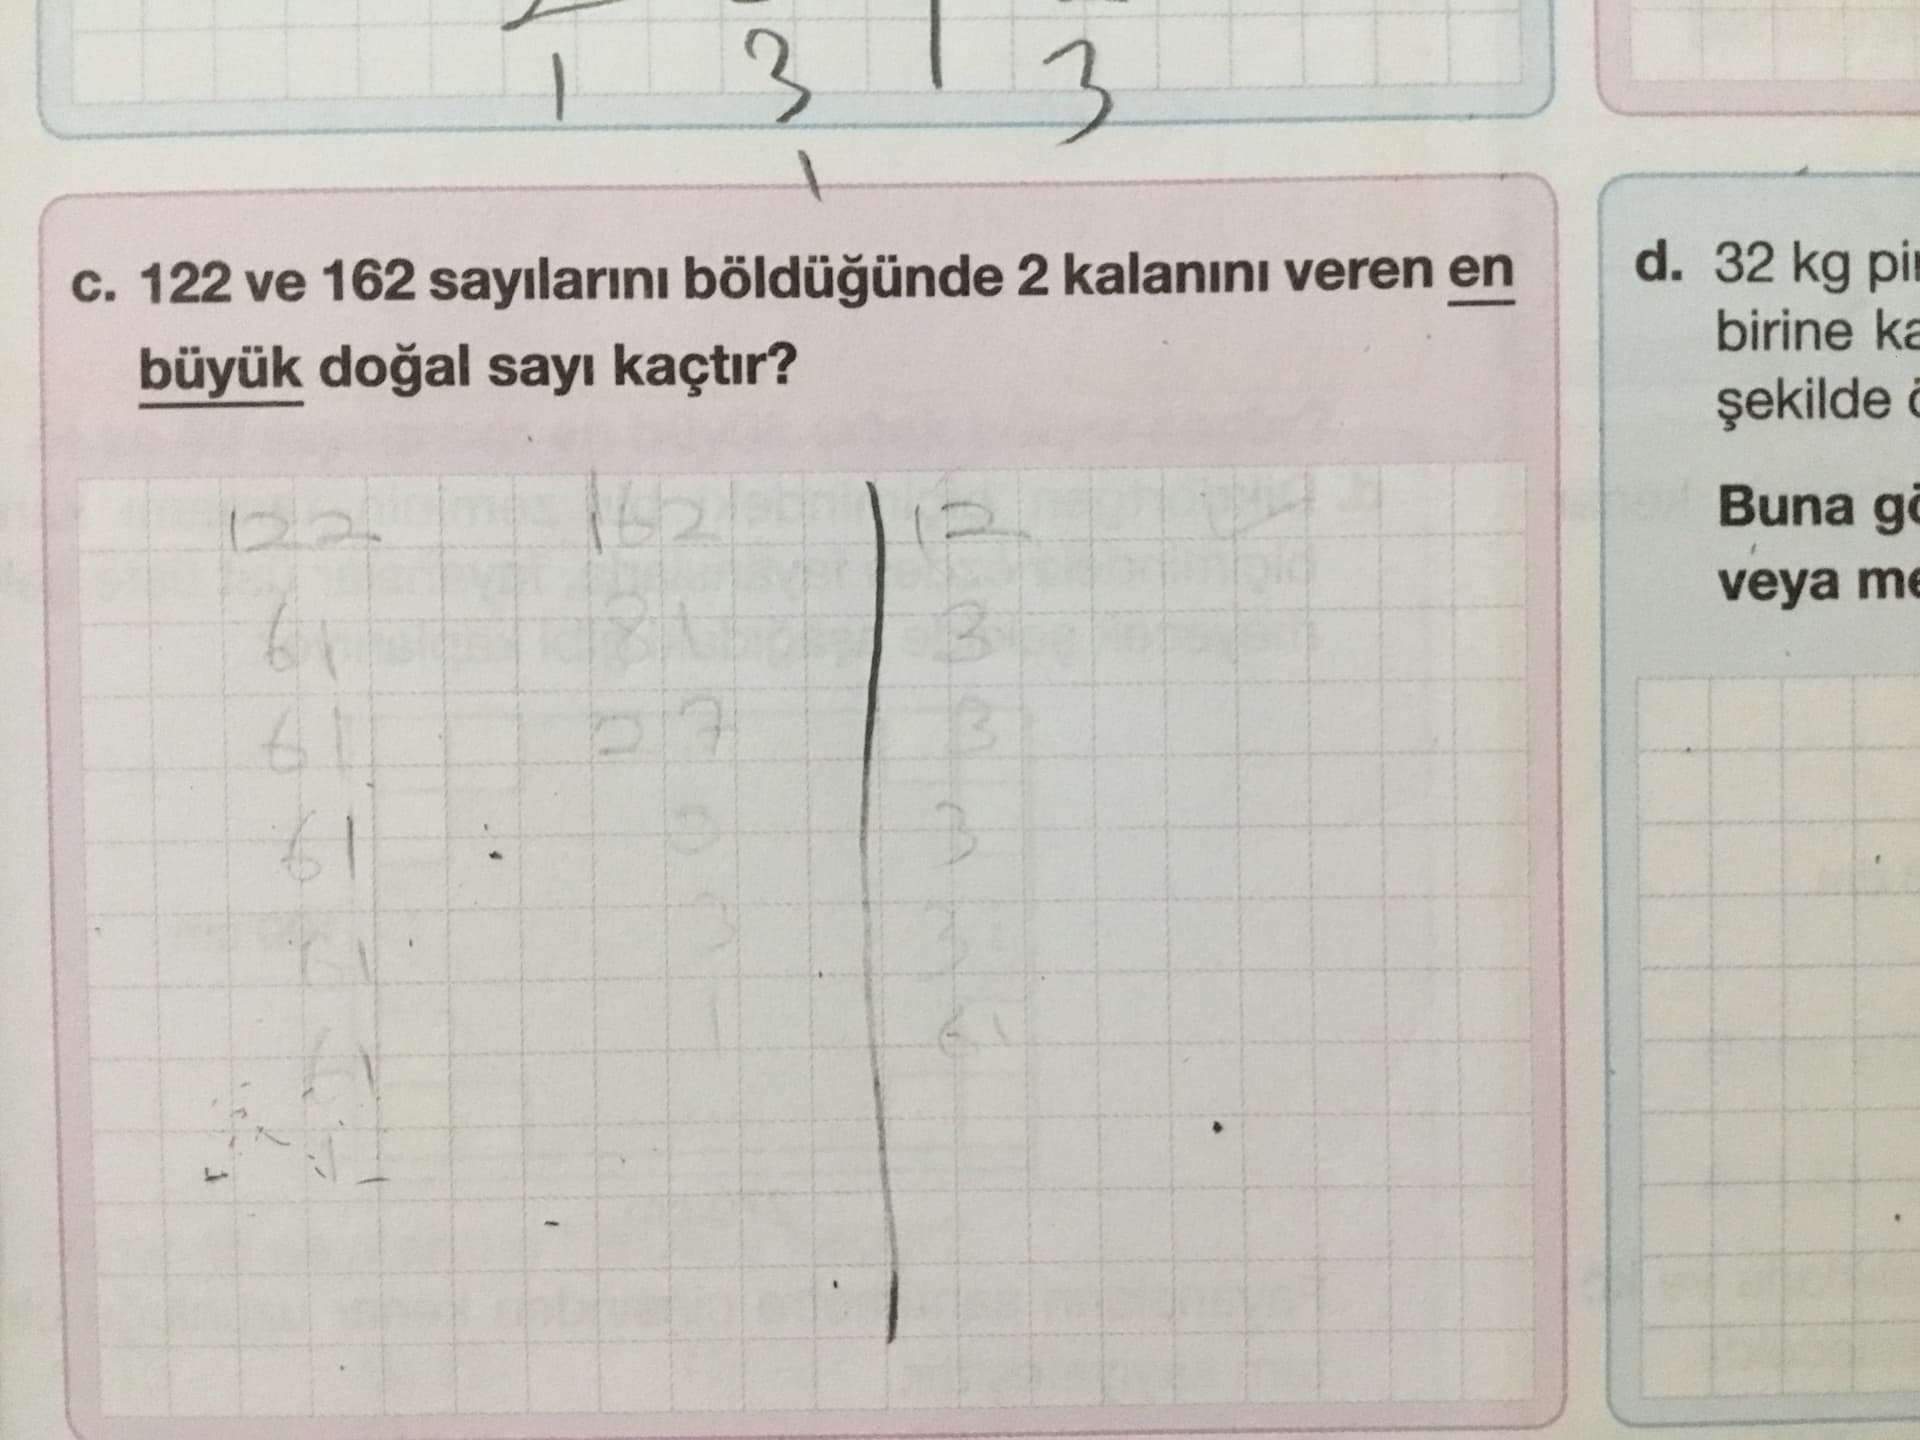 1 3 3
1
c. 122 ve 162 sayılarını böldüğünde 2 kalanını veren en
büyük doğal sayı kaçtır?
d. 32 kg
birine
şekilde
Buna
veya
122 162 12
61 81 3
61 27 3
61 3
61 3 3
61 1 61
1